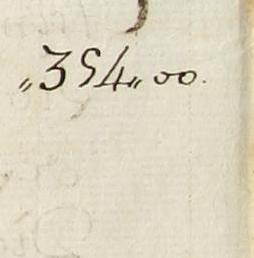 „354„00.